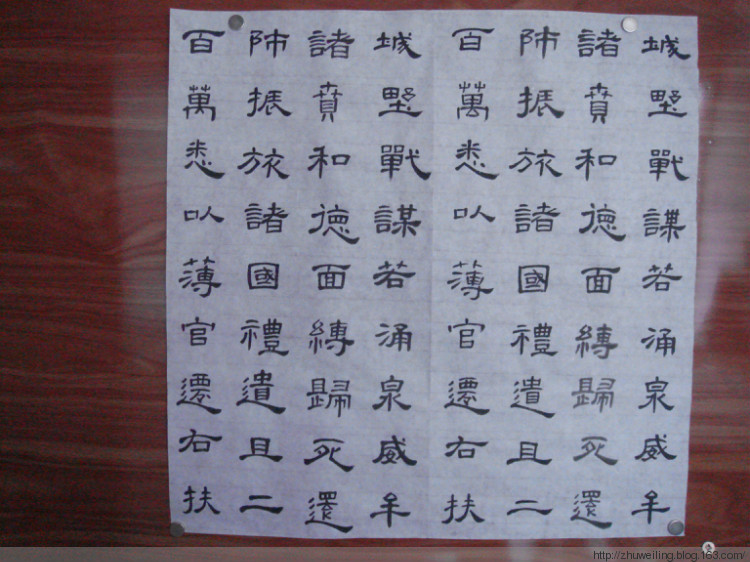 城野戰謀若涌泉威牟
諸賁和德面縛歸死還
師振旅諸國禮遺且二
百萬悉以薄官遷右扶
城野戰謀若涌泉威牟
諸賁和德面縛歸死還
師振旅諸國禮遺且二
百萬悉以薄官遷右扶
http://zhuweiling.blog.163.com/